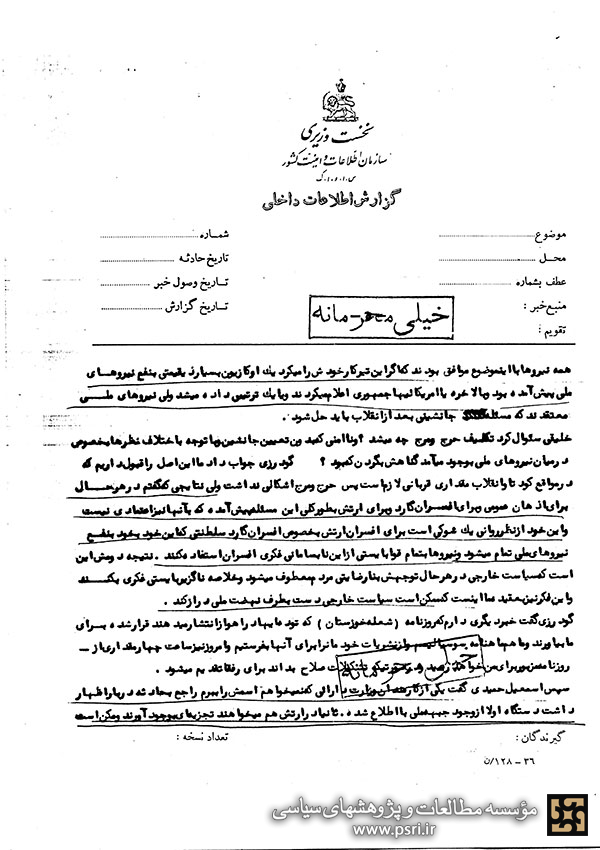 نخست وزیری
سازمان اطلاعات و امنیت کشور
س.ا.و.ا.ک
گزارش اطلاعات داخلی
موضوع
شماره
محل
تاریخ حادثه
عطف بشماره
تاریخ وصول خبر
منبع خبر :
تاریخ گزارش
تقویم :
خیلی محرمانه
همه نیروها با اینموضوع موافق بودند که اگر این تیر کار خودش را میکرد یک اوکازیون بسیار ذیقیمتی بنفع نیروهای
ملی پیش آمده بود و بالاخره با امریکائیها جمهوری اعلام میکردند و یا یک ترتیبی داده میشد ولی نیروهای ملی
معتقدند که مسئله جانشینی بعد از انقلاب باید حل شود .
خلیقی سئوال کرد تکلیف حرج و مرج چه میشد ؟ و ناامنی کمبود تعیین جانشین و با توجه باختلاف نظرها بخصوص
در میان نیروهای ملی بوجود میآمد گناهش بگردن که بود ؟ گودرزی جواب داد ما این اصل را قبول داریم که
در مواقع کودتا و انقلاب مقداری قربانی لازم است پس حرج و مرج اشکالی نداشت ولی نتایجی که گفتم در هر حال
برای اذهان عمومی و برای افسران گارد و برای ارتش بطور کلی این مسئله پیش آمده که بآنها نیز اعتمادی نیست
و این خود از نظر روانی یک شوکی است برای افسران ارتش بخصوص افسران گارد سلطنتی که این خود بخود بنفع
نیروهای ملی تمام میشود و نیروها بتمام قوا بایستی از این نابسامانی فکری افسران استفاده کنند . نتیجه دومش این
است که سیاست خارجی در هر حال توجهش بنارضایتی مردم معطوف میشود و خلاصه ناگزیر بایستی فکری بکنند
و این فکر نیز بعقیده ما اینست که ممکن است سیاست خارجی دست بطرف نهضت ملی دراز کند .
گودرزی گفت خبر دیگری دارم که روزنامه ( شعله خوزستان ) که توده‌ایها در اهواز انتشار میدهند قرار شده برای
ما بیاورند و ما هم ماهنامه سوسیالیسم و از نشریات خود مانرا برای آنها بفرستیم و امروز نیز ساعت چهار مقداری از –
روزنامه مزبور برای من خواهد رسید و تشکیلات صلاح بداند برای رفقا نقد یم میشود .
سپس اسمعیل حمیدی گفت یکی از کارمندان وزارت دارائی که نمیخواهم اسمش را ببرم راجع بحادثه دربار اظهار
داشت دستگاه اولا از وجود جبهه ملی با اطلاع شده . ثانیا در ارتش هم میخواهند تجزیه‌ای بوجود آورند و ممکن است
خیلی محرمانه
گیرندگان :
تعداد نسخه :
۳۶ – ۱۲۸/ن
مؤسسه مطالعات و پژوهشهای سیاسی
www.psri.ir